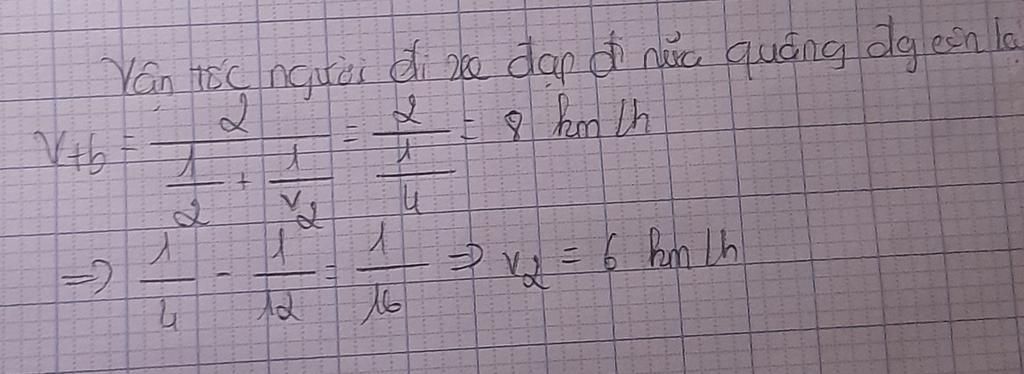 Vận tốc người đi xe đạp đi nửa quãng đg còn lạ
Vtb = 2 / (1/2 + 1/v2) = 2 / (1/4) = 8 km/h
=> 1/4 - 1/12 = 1/16 => v2 = 6 km/h